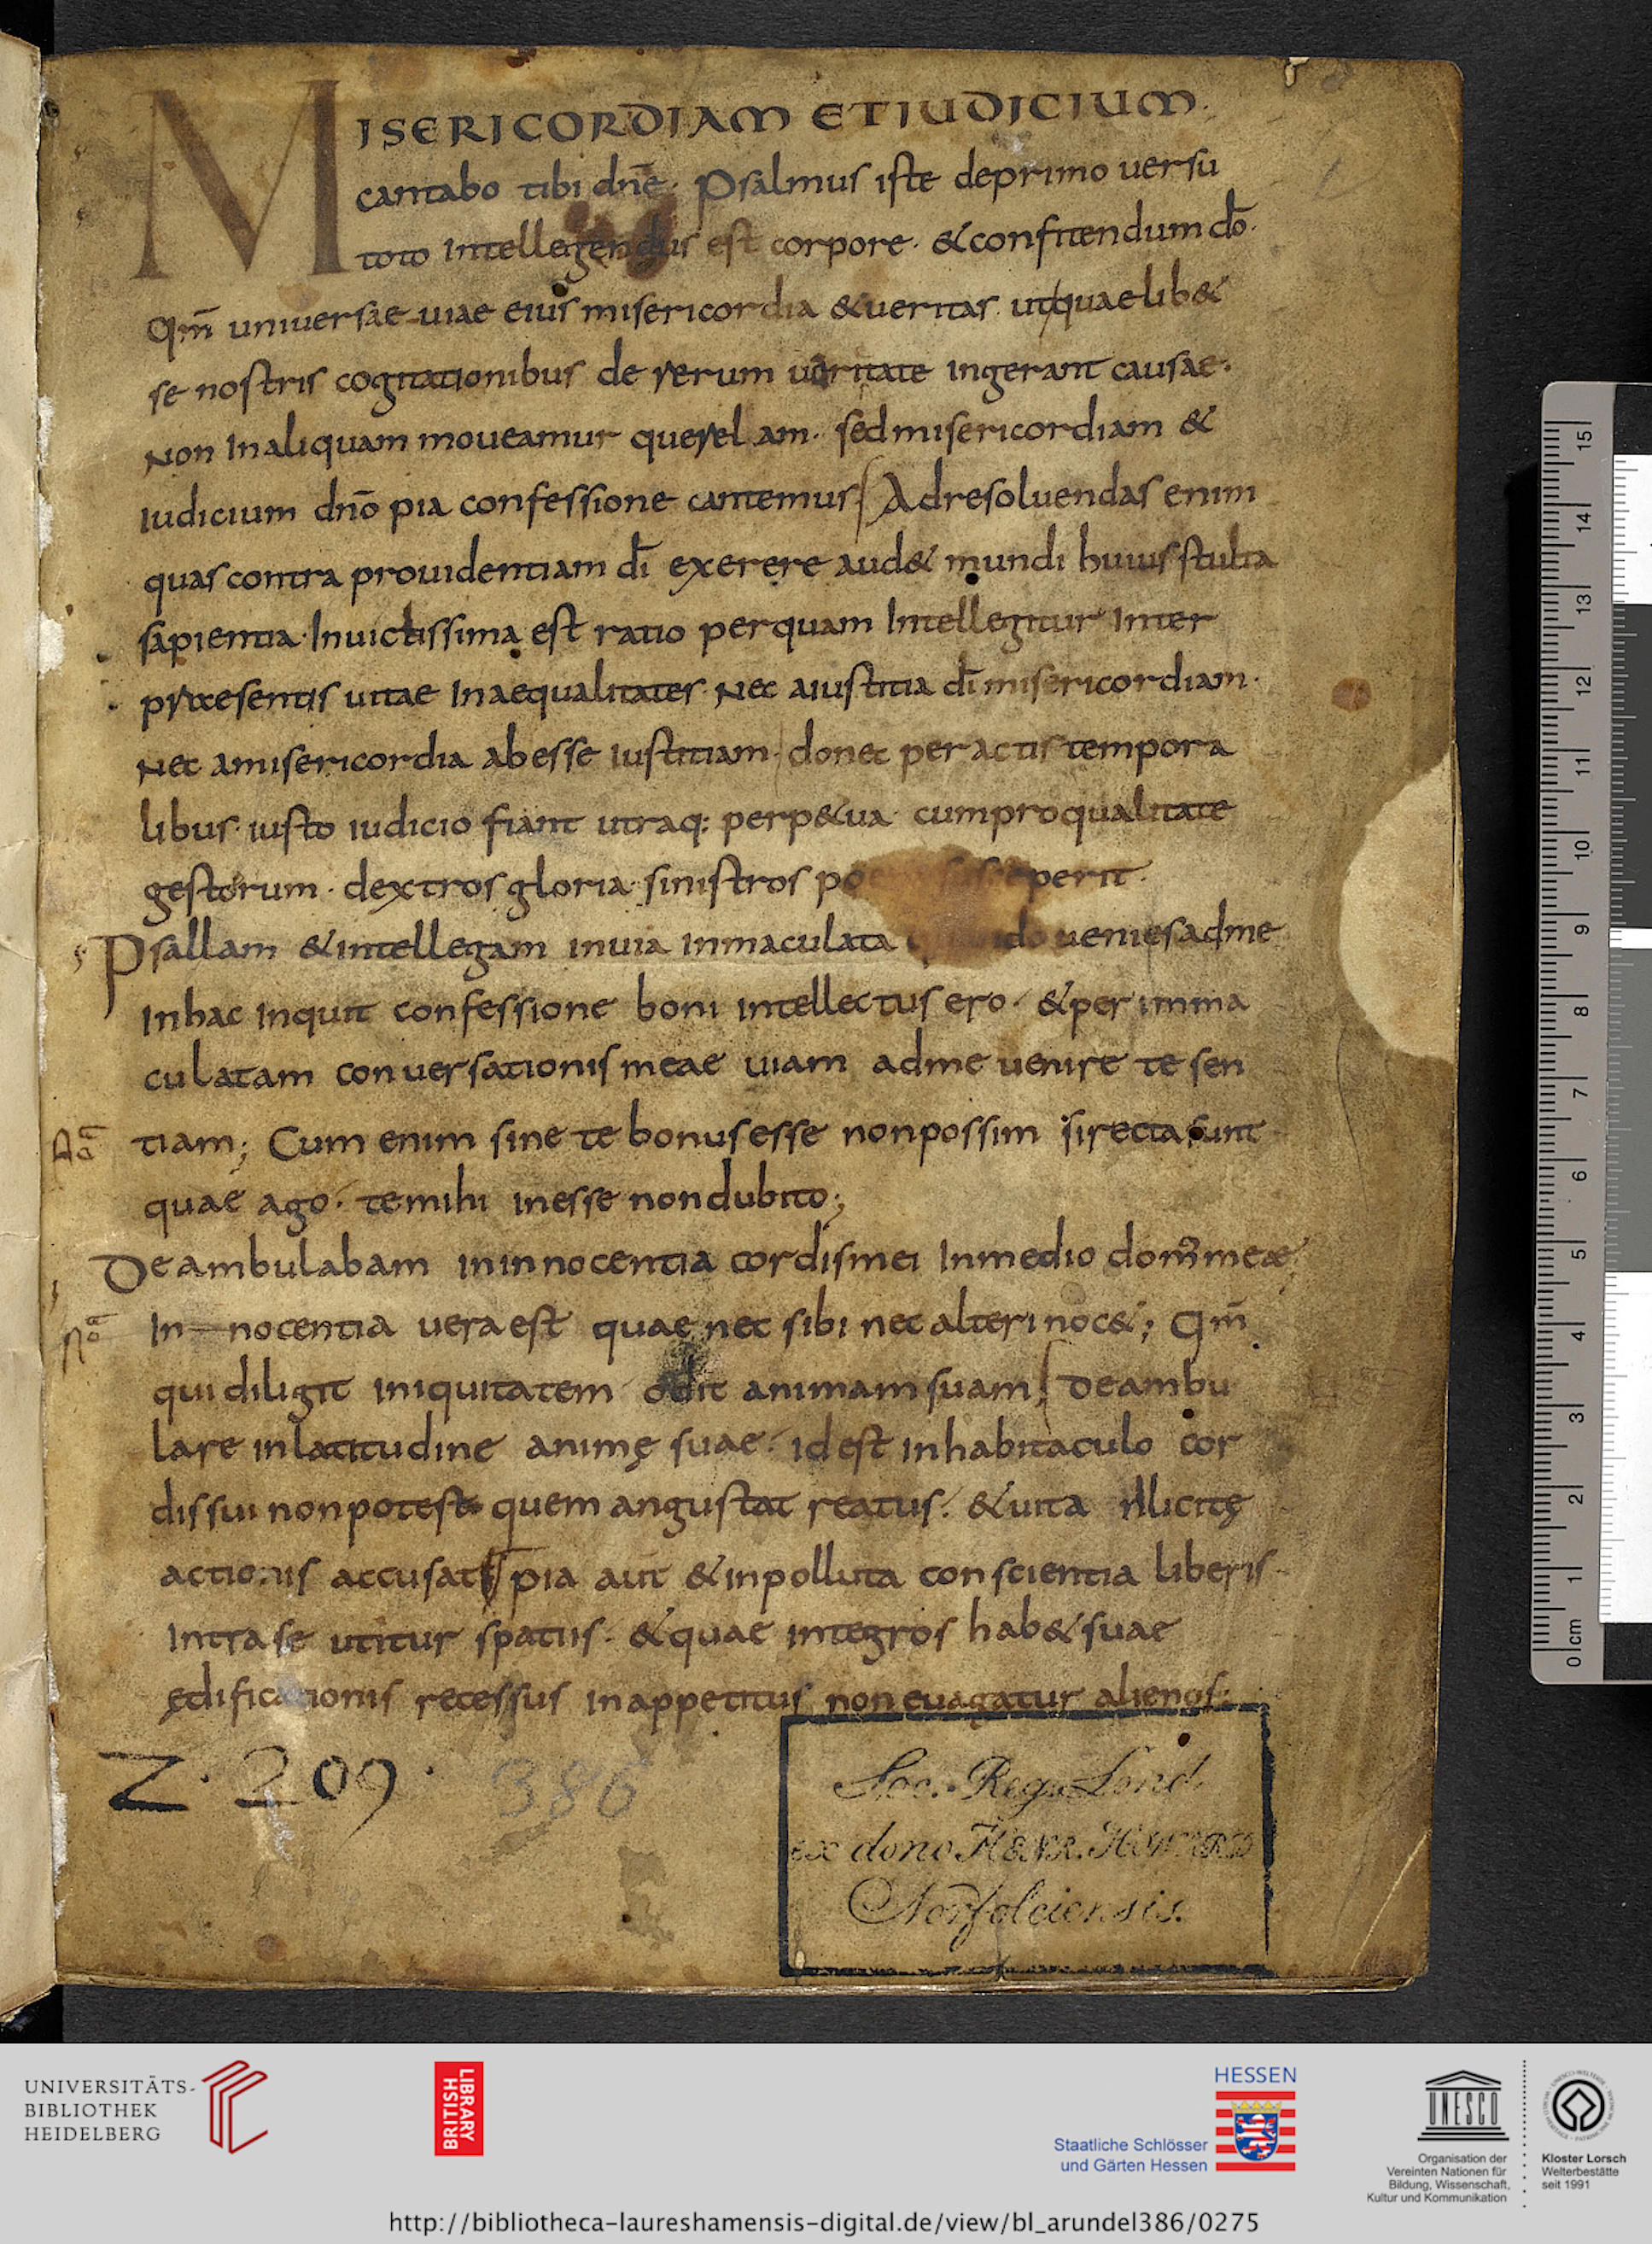 MISERICORDIAM ET IUDICIUM.
cantabo tibi dnē. Psalmus iste deprimo versu
toto intellegendus est corpore. & confitendum dō.
Qm̄ universae viae eius misericordia & veritas. ut quaelib&
se nostris cogitationibus de rerum varitate ingerant causae.
Non in aliquam moveamur querelam. sed misericordiam &
iudicium dnō pia confessione cantemus; Ad resolvendas enim
quas contra providentiam dī exerere aud& mundi huius stulta
sapientia. Invictissima est ratio per quam Intellegitur Inter
praesentis vitae Inaequalitates. Nec a iustitia dī misericordiam.
Nec a misericordia abesse iustitiam. donec peractis tempora
libus. iusto iudicio fiant utraq: perp&ua. cum pro qualitate
gestorum. dextros gloria. sinistros perit.
Psallam & intellegam in via inmaculata venies ad me
In hac inquit confessione boni intellectus ero. & per imma
culatam conversationis meae viam ad me venire te sen
tiam; Cum enim sine te bonus esse non possim si recta sunt
quae ago. te mihi inesse non dubito;
Deambulabam in innocentia cordis mei In medio dom' meae
In nocentia vera est quae nec sibi nec alteri noc&; Qm̄
qui diligit iniquitatem odit animam suam; Deambu
lare in latitudine animę suae. id est in habitaculo cor
dis sui non potest quem angustat reatus. & vita illicitę
actionis accusat; pia aut & inpolluta conscientia liberis
Intra se utitur spatiis. & quae integros hab& suae
ędificationis recessus in appetitus non evagatur alienos;
Z. 209. 386
Soc. Reg. Lond.
ex dono HENR. HOWARD
Norfolciensis.
0 cm 1 2 3 4 5 6 7 8 9 10 11 12 13 14 15
UNIVERSITÄTS-
BIBLIOTHEK
HEIDELBERG
BRITISH
LIBRARY
HESSEN
Staatliche Schlösser
und Gärten Hessen
UNESCO
Organisation der
Vereinten Nationen für
Bildung, Wissenschaft,
Kultur und Kommunikation
Kloster Lorsch
Welterbestätte
seit 1991
http://bibliotheca-laureshamensis-digital.de/view/bl_arundel386/0275